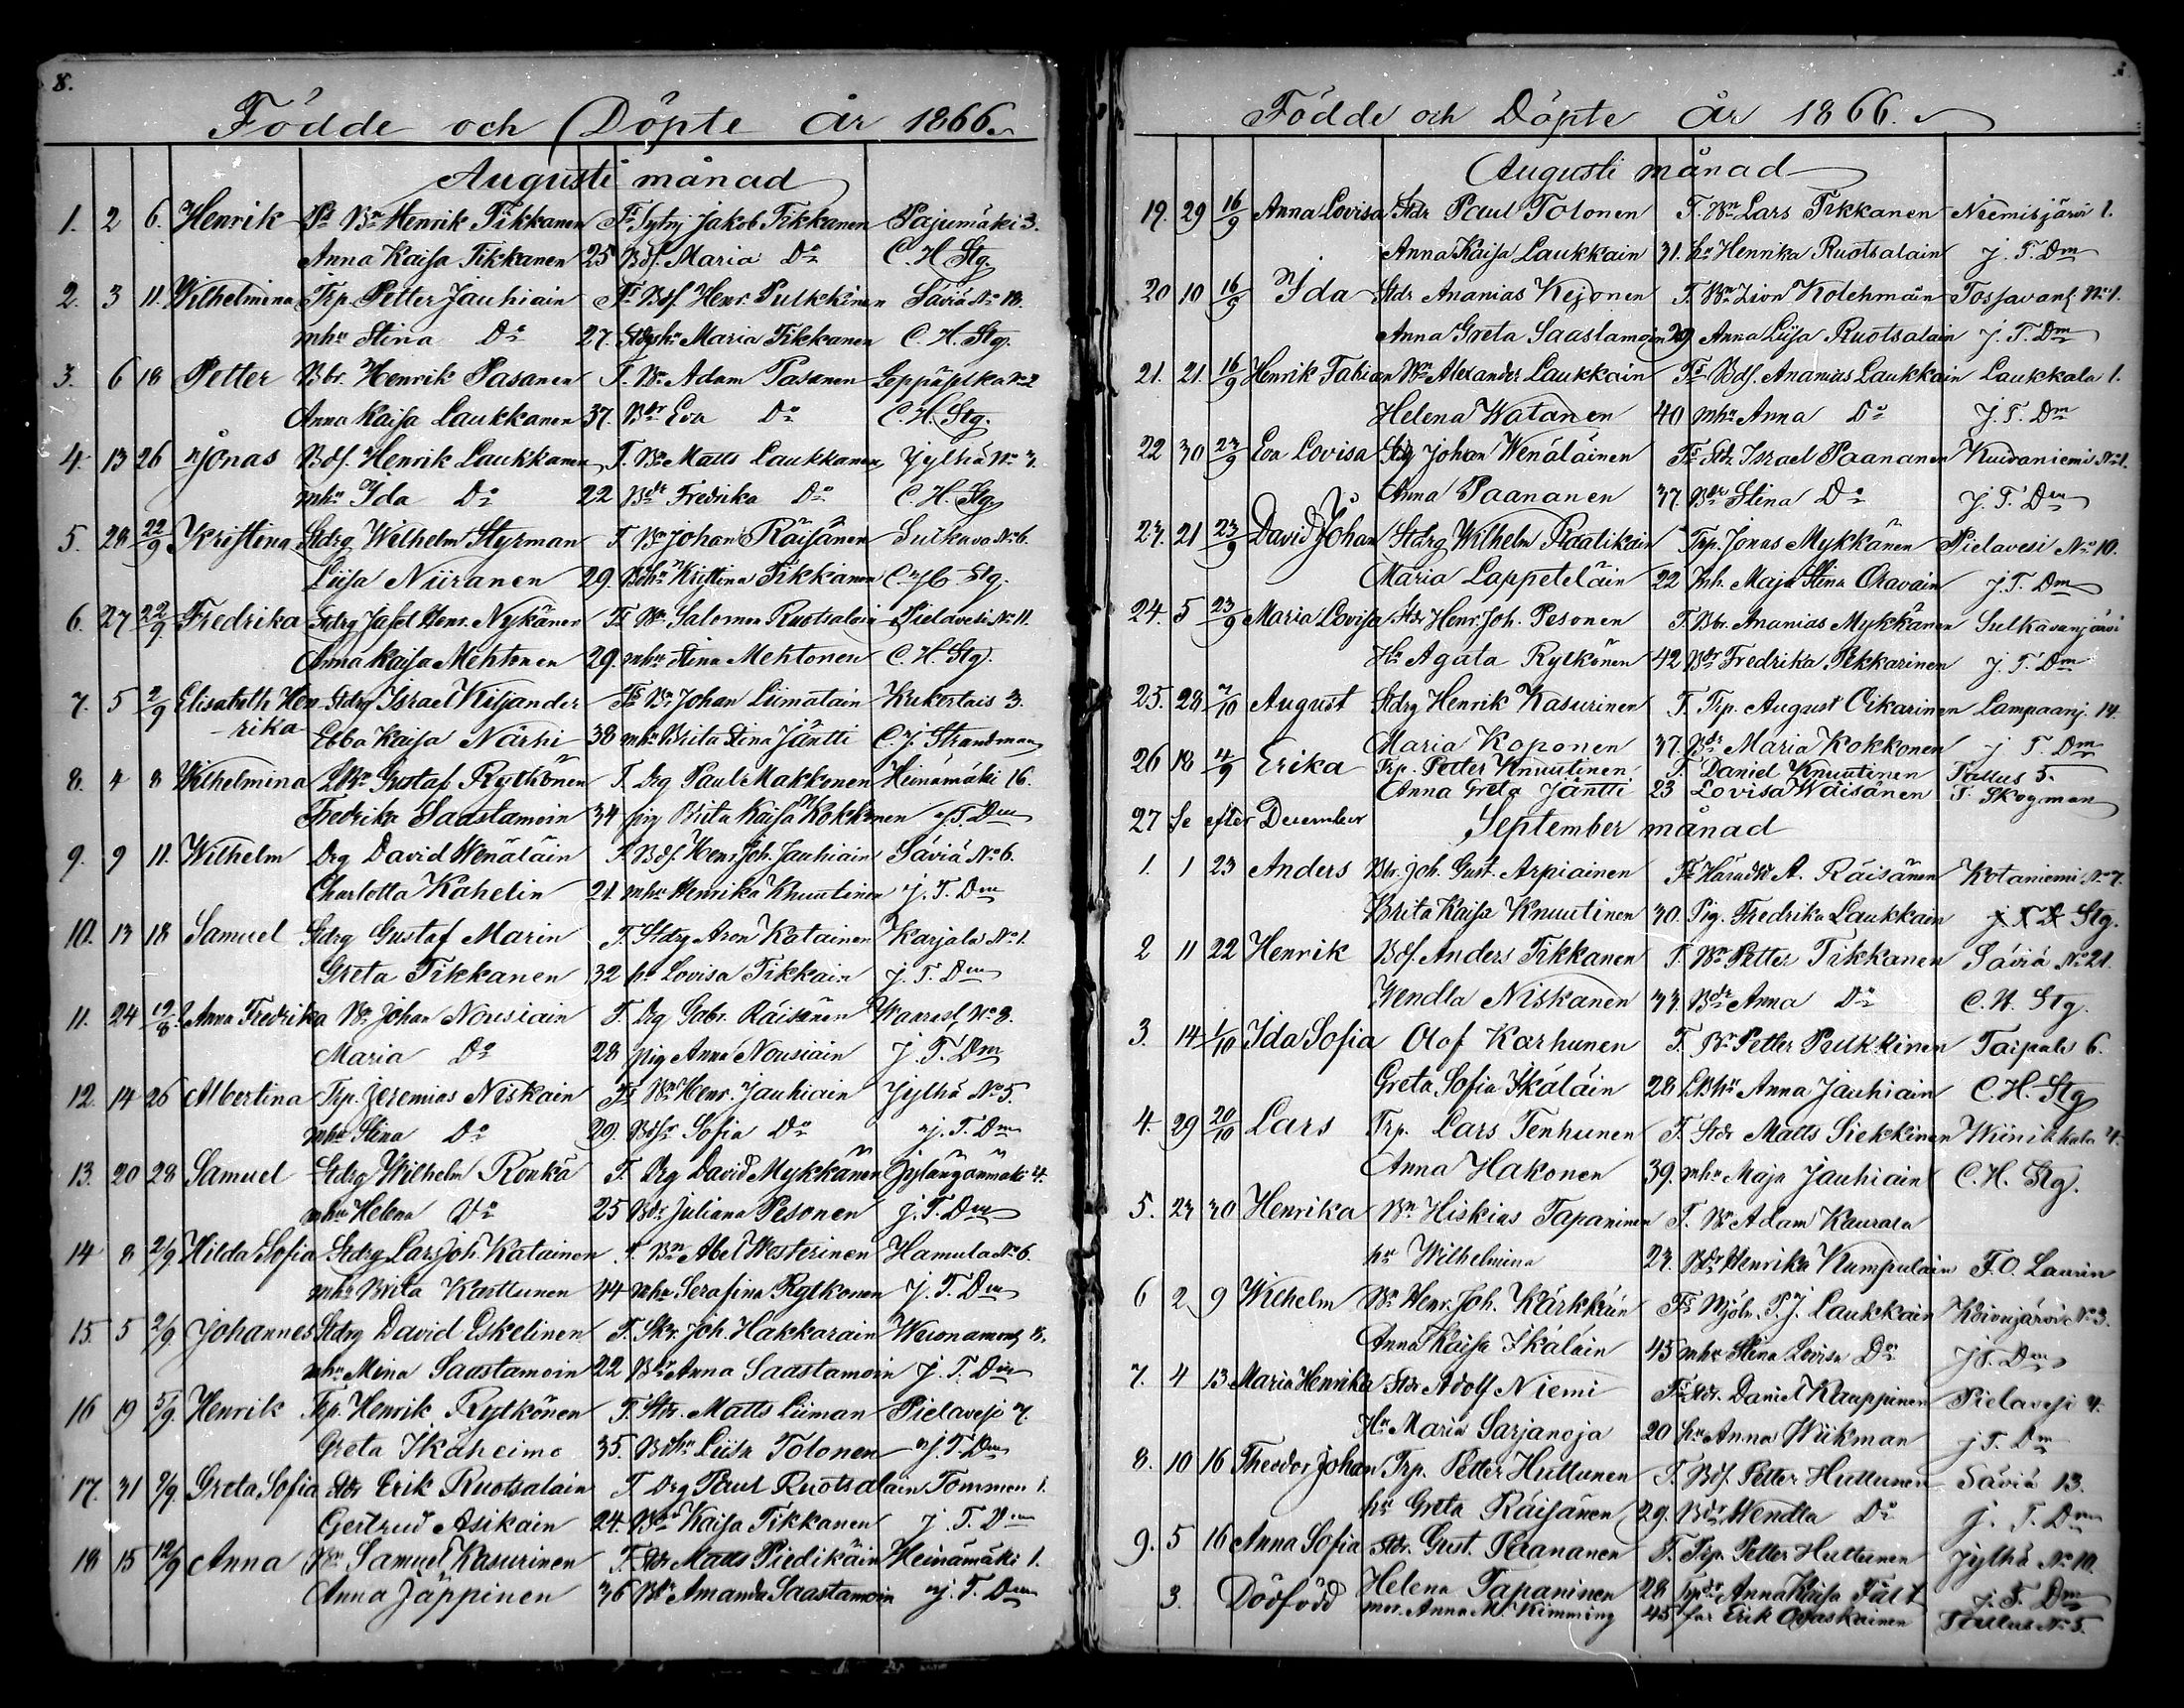 8.
Födde och Döpte år 1866.
Augusti månad
1. 2 6. Henrik Bn Henrik Tikkanen Jakob Tikkanen Pajumäki 3.
Anna Kaisa Tikkanen 25 Bdf. Maria Do C. H. Stg.
2. 3 11. Wilhelmina Trp. Petter Jauhiain Fr Bdf. Henr. Pulkkinen Säviä No 18.
mhu Stina Do 27. Maria Tikkanen C. H. Stg.
3. 6 18 Petter Bbr. Henrik Pasanen F. Bn Adam Pasanen No 2
Anna Kaisa Laukkanen 37. Bdr Eva Do C. H. Stg.
4. 13 26 Jonas Bdf. Henrik Laukkanen F. Bn Matts Laukkanen Jylhä No
mhu Ida Do 22 Bdr Fredrika Do C. H. Stg.
5. 28 22/9 Kristina Stdrg Wilhelm Styrman F. Bn Johan Räisänen Sulkava No 6.
Liisa Niiranen 29. Kristina Tikkanen C. H. Stg.
6. 27 22/9 Fredrika Stdrg Henr. Nykänen Fr Bn Salomon Ruotsalain Pielavesi No 11.
Anna Kaisa Mehtonen 29. mhu Stina Mehtonen C. H. Stg.
7. 5 2/9 Elisabeth Hen- Stdrg Israel Kiljander Fr Bn Johan Liimatain 3.
rika Ebba Kaisa Närhi 38 mhu Brita Stina Jäntti C. J. Strandman
8. 4 8 Wilhelmina Gustaf Rytkönen F. Drg Paul Makkonen Heinämäki 16.
Fredrika Saastamoin 34 pig Brita Kaisa Kokkonen J. T. Dm
9. 9 11. Wilhelm Drg David Wenäläin F. Bdf. Henr. Joh. Jauhiain Säviä No 6.
Charlotta Kahelin 21. mhu Henrika Knuutinen J. T. Dm
10. 13 18 Samuel Stdrg Gustaf Marin F. Stdrg Aron Katainen Karjala No 1.
Greta Tikkanen 32 hu Lovisa Tikkain J. T. Dm
11. 24 19/8 Anna Fredrika Bn Johan Nousiain F. Drg Gabr. Räisänen No 8.
Maria Do 28 pig Anna Nousiain J. T. Dm
12. 14 26 Albertina Trp. Jeremias Niskain Fr Bn Henr. Jauhiain Jylhä No 5.
mhu Stina Do 29. Sofia Do J. T. Dm
13. 20 28 Samuel Stdrg Wilhelm Ronkä F. Drg David Mykkänen 4.
mhu Helena Do 25 Bdr Juliana Pesonen J. T. Dm
14 8 2/9 Hilda Sofia Stdrg Lars Joh. Katainen F. Bn Abel Westerinen Hamula No 6.
mhu Brita Karttunen 44 mhu Serafina Rytkonen J. T. Dm
15. 5 2/9 Johannes Stdrg David Eskelinen F. Skr. Joh. Hakkarain
mhu Mina Saastamoin 22 Anna Saastamoin J. T. Dm
16 19 5/9 Henrik Trp. Henrik Rytkönen F. Str. Matts Liiman Pielavesi 7.
Greta Ikäheimo 35. Liisa Tolonen J. T. Dm
17. 31 9/9 Greta Sofia Stdr Erik Ruotsalain F Drg Paul Ruotsalain Tommon 1.
Gertrud Asikain 24. Kaisa Tikkanen J. T. Dm
18 15 12/9 Anna Bn Samuel Kasurinen F. Stdr Matts Piedikäin Heinämäki 1.
Anna Jäppinen 36 Bdr Amanda Saastamoin J. T. Dm
Födde och Döpte år 1866.
Augusti månad
19. 29 16/9 Anna Lovisa Stdr Paul Tolonen F. Bn Lars Tikkanen Niemisjärvi 1.
Anna Kaisa Laukkain 31. hu Henrika Ruotsalain J. T. Dm
20 10 16/9 Ida Stdr Ananias Kejonen F. Bn Zion Kolehmain No 1.
Anna Greta Saastamoin 29. Anna Liisa Ruotsalain J. T. Dm
21. 21. 16/9 Henrik Fabian Bn Alexander Laukkain Fr Bdf. Ananias Laukkain Laukkala 1.
Helena Watanen 40 mhu Anna Do J. T. Dm
22 30 23/9 Eva Lovisa Stdr Johan Wenäläinen Fr Stdr Israel Paananen Kuivaniemi No 1.
Anna Paananen 37. Bdr Stina Do J. T. Dm
23. 21 23/9 David Johan Stdrg Wilhelm Trp. Jonas Mykkänen Pielavesi No 10.
Maria Lappeteläin 22 Inh. Maja Stina Oravain J. T. Dm
24. 5 23/9 Maria Lovisa Stdr Henr. Joh. Pesonen F. Bbr. Ananias Mykkänen Sulkavanjärvi
Hu Agata Rytkönen 42 Bdr Fredrika Pekkarinen J. T. Dm
25. 28 7/10 August Stdrg Henrik Kasurinen F. Trp. August Oikarinen Lampaanj. 14.
Maria Koponen 37. Bdr Maria Kokkonen J. T. Dm
26 18 4/9 Erika Trp. Petter Knuutinen F. Daniel Knuutinen Tallus 5.
Anna Greta Jäntti 23 Lovisa Wäisänen T. Skogman
27 Se efter December
September månad
1. 1 23 Anders Bbr. Joh. Gust. Arpiainen A. Räisänen Kotaniemi No 7.
Brita Kaisa Knuutinen 30. Pig. Fredrika Laukkain J. T. D Stg.
2 11 22 Henrik Bdf. Anders Tikkanen F. Bn Petter Tikkanen Säviä No 21.
Wendla Niskanen 33. Bdr Anna Do C. H. Stg.
3. 14 1/10 Ida Sofia Olof Karhunen F. Bn Petter Pulkkinen Taipale 6.
Greta Sofia Ikäläin 28 Anna Jauhiain C. H. Stg
4. 29 20/10 Lars Trp. Lars Tenhunen F. Stdr Matts Siekkinen Wiinikkala 4.
Anna Hakonen 39. mhu Maja Jauhiain C. H. Stg.
5. 23 30 Henrika Bn Hiskias Tapaninen F. Bn Adam Kaurala
hu Wilhelmina 27. Bdr Henrika Kumpulain F. O. Laurin
6 2 9 Wilhelm Bn Henr. Joh. Kärkkäin Fr Mjöln. P. J. Laukkain Koivujärvi No 3.
Anna Kaisa Ikäläin 45 mhu Stina Lovisa Do J. T. Dm
7. 4 13 Maria Henrika Stdr Adolf Niemi Fr Stdr. Daniel Kauppinen Pielavesi 4.
Hu Maria Sarjanoja 20 hu Anna Wiikman J. T. Dm
8. 10 16 Theodor Johan Trp. Petter Huttunen F. Bdf. Petter Huttunen Säviä 13.
hu Greta Räisänen 29. Bdr Wendla Do J. T. Dm
9. 5 16 Anna Sofia Stdr. Gust. Paananen F. Trp. Petter Huttunen Jylhä No 10.
Helena Tapaninen 28 Anna Kaisa Fält J. T. Dm
3. Dödfödd mor. Anna M. Kimming 45 far Erik Ovaskainen Tallus No 5.